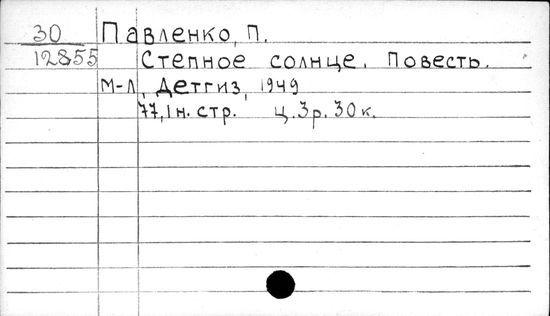 30 Павленко, П.
12855 Степное солнце. Повесть.
М-Л, Детгиз, 1949
77,1н.стр. ц.3р.30к.